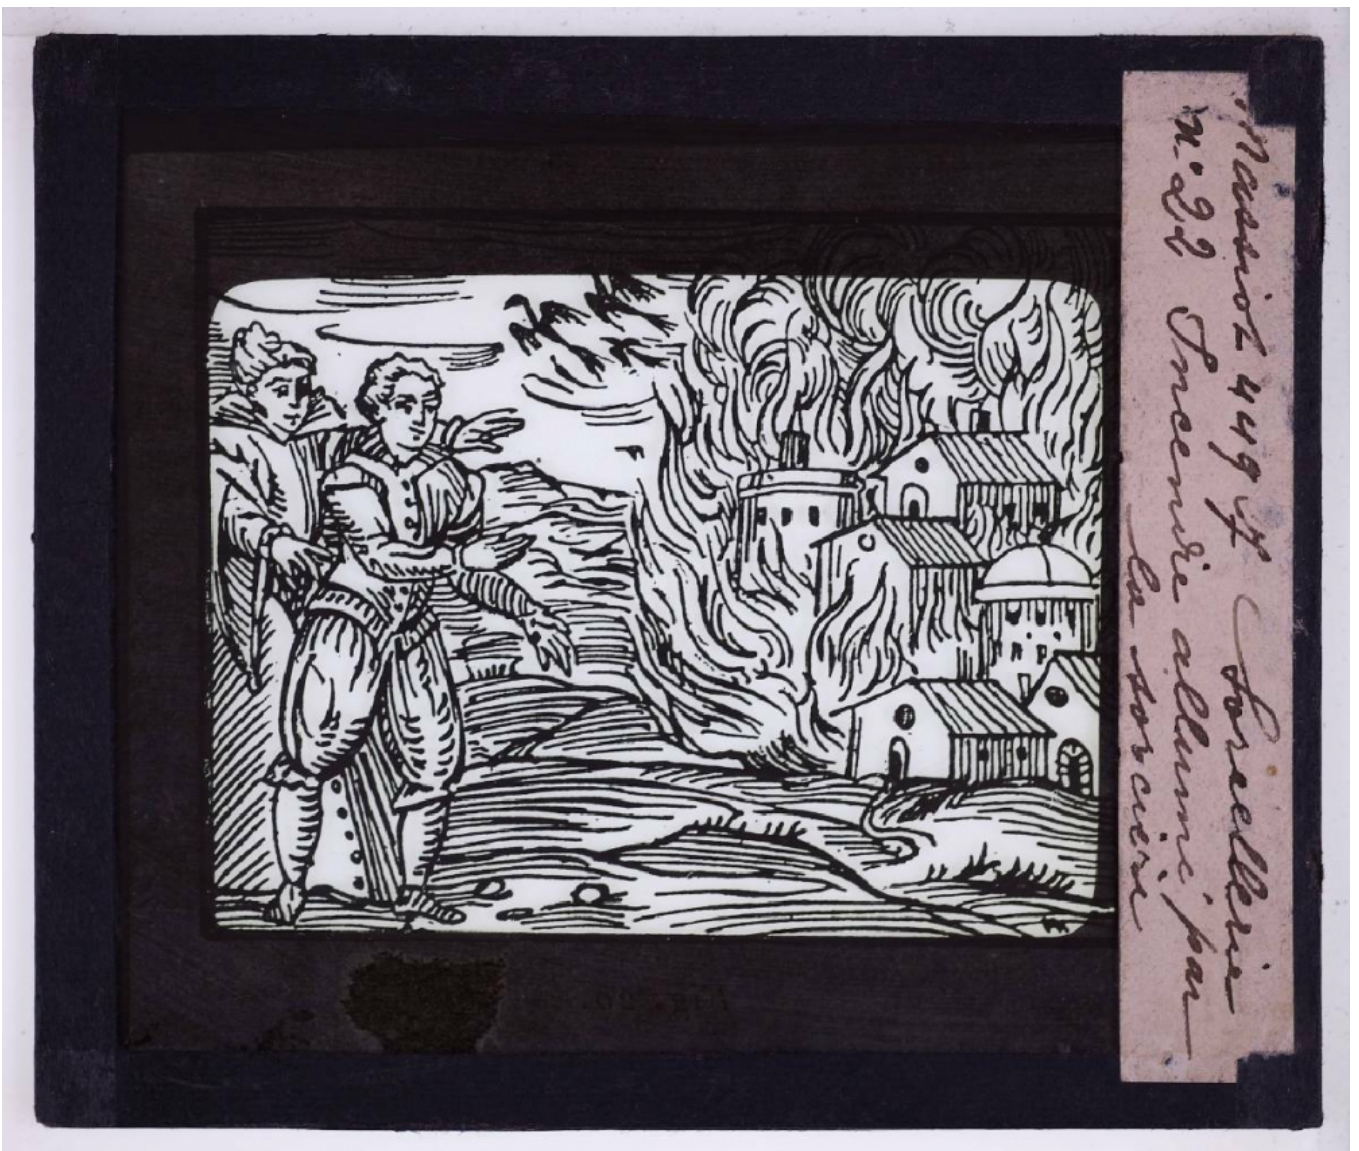 Massiot 449 Sorcellerie
n° 22 Incendie allumé par
la sorcière